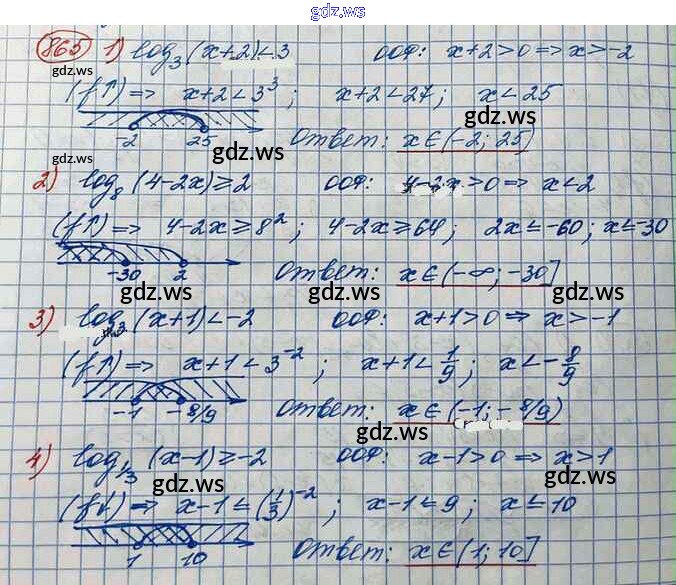 gdz.ws
865 1) log₃(x+2)<3 ООФ: x+2>0 => x>-2
gdz.ws
(f↑) => x+2<3³; x+2<27; x<25
gdz.ws
-2 25 Ответ: x∈(-2; 25)
gdz.ws gdz.ws
2) log₈(4-2x)≥2 ООФ: 4-2x>0 => x<2
(f↑) => 4-2x≥8²; 4-2x≥64; 2x≤-60; x≤-30
gdz.ws
-30 2 Ответ: x∈(-∞; -30]
gdz.ws gdz.ws
3) log₃(x+1)<-2 ООФ: x+1>0 => x>-1
(f↑) => x+1<3⁻²; x+1<1/9; x<-8/9
gdz.ws
-1 -8/9 Ответ: x∈(-1; -8/9)
gdz.ws
4) log₁/₃(x-1)≥-2 ООФ: x-1>0 => x>1
gdz.ws gdz.ws
(f↓) => x-1≤(1/3)⁻²; x-1≤9; x≤10
1 10 Ответ: x∈(1; 10]
gdz.ws gdz.ws
gdz.ws